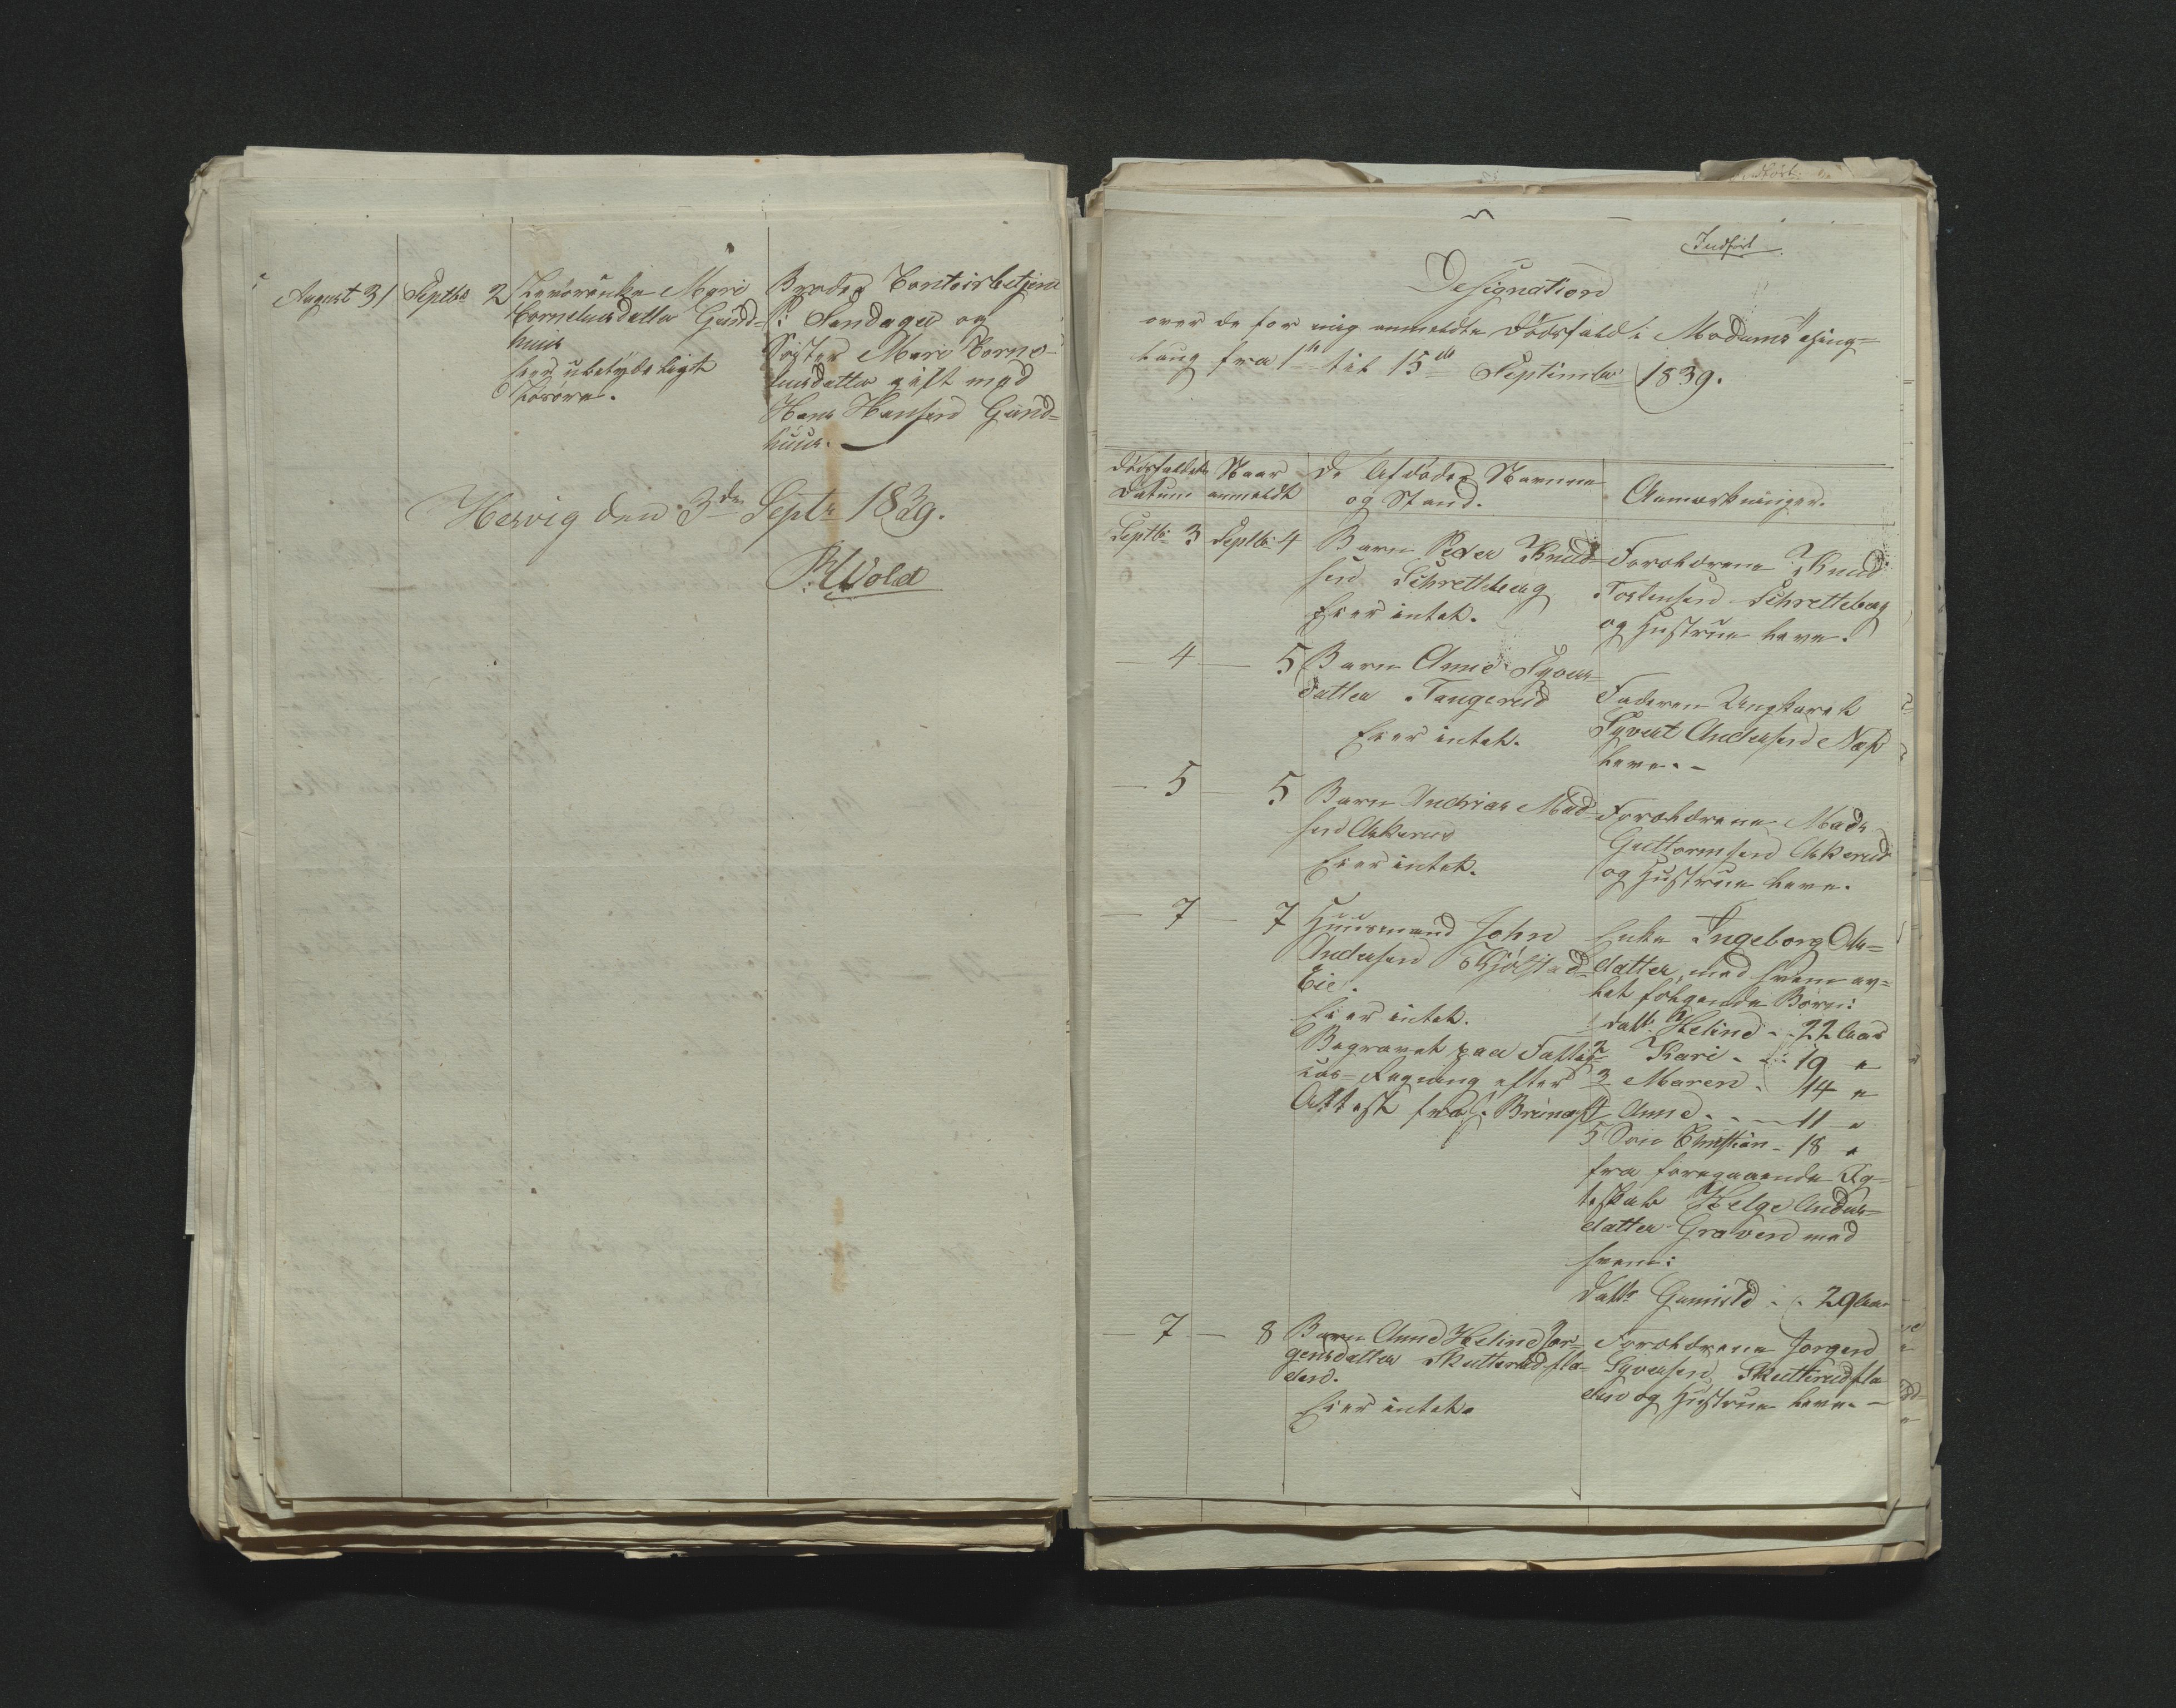 August 31 Septbr 2 Mari
Cornelius datter Gund-
huus
har ubetydeligt
Løsøre.
Broder Contoirbetjent
i Sandager og
Søster Mari Corne-
liusdatter gift med
Hans Hansen Gund-
huus.
Hervig den 3den Septr 1839.
Wold
Indført
Designation
over de for mig anmeldte Dødsfald i Modums Thing-
laug fra 1ste til 15de September 1839.
Dødsfaldets Datum
Naar anmeldt
De Afdødes Navne
og Stand.
Anmærkninger.
Septbr 3 Septbr 4 Barn Peder Knud-
sen Schretteberg
Eier intet.
Forældrene Knud
Tostensen Schretteberg
og Hustrue leve.
— 4 — 5 Barn Anne Syvers-
datter Tangerud
Eier intet.
Faderen Ungkarl
Syvert Andersen Næss
leve. -
— 5 — 5 Barn Andreas Mad-
sen Askerud
Eier intet.
Forældrene Mads
Guttormsen Askerud
og Hustrue leve.
— 7 — 7 Huusmand John
Andersen Kjølstad
Eie.
Eier intet.
Begravet paa Fattig-
cas- Regning efter
Attest fra
Enke Ingeborg Ols-
datter, med hvem av-
let følgende Børn:
1 Dattr Heline - 22 Aar
2 Kari - 19 "
3 Maren - 14 "
4 Anne - 11 "
5 Søn Christian - 18 "
fra foregaaende Æg-
teskab Helge Anders-
datter Graven med
hvem:
Dattr Gunild - 29 Aar
— 7 — 8 Barn Anne Heline Jør-
gensdatter Skutterudfla-
den.
Eier intet.
Forældrene Jørgen
Syversen Skutterudfla
den og Hustrue leve. —